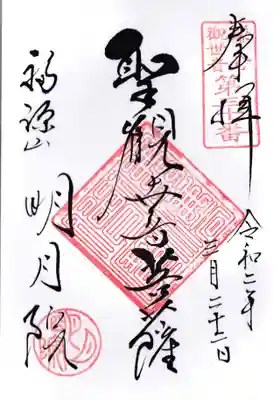 奉拝
令和二年
三月二十二日
聖観世音菩薩
福源山
明月院